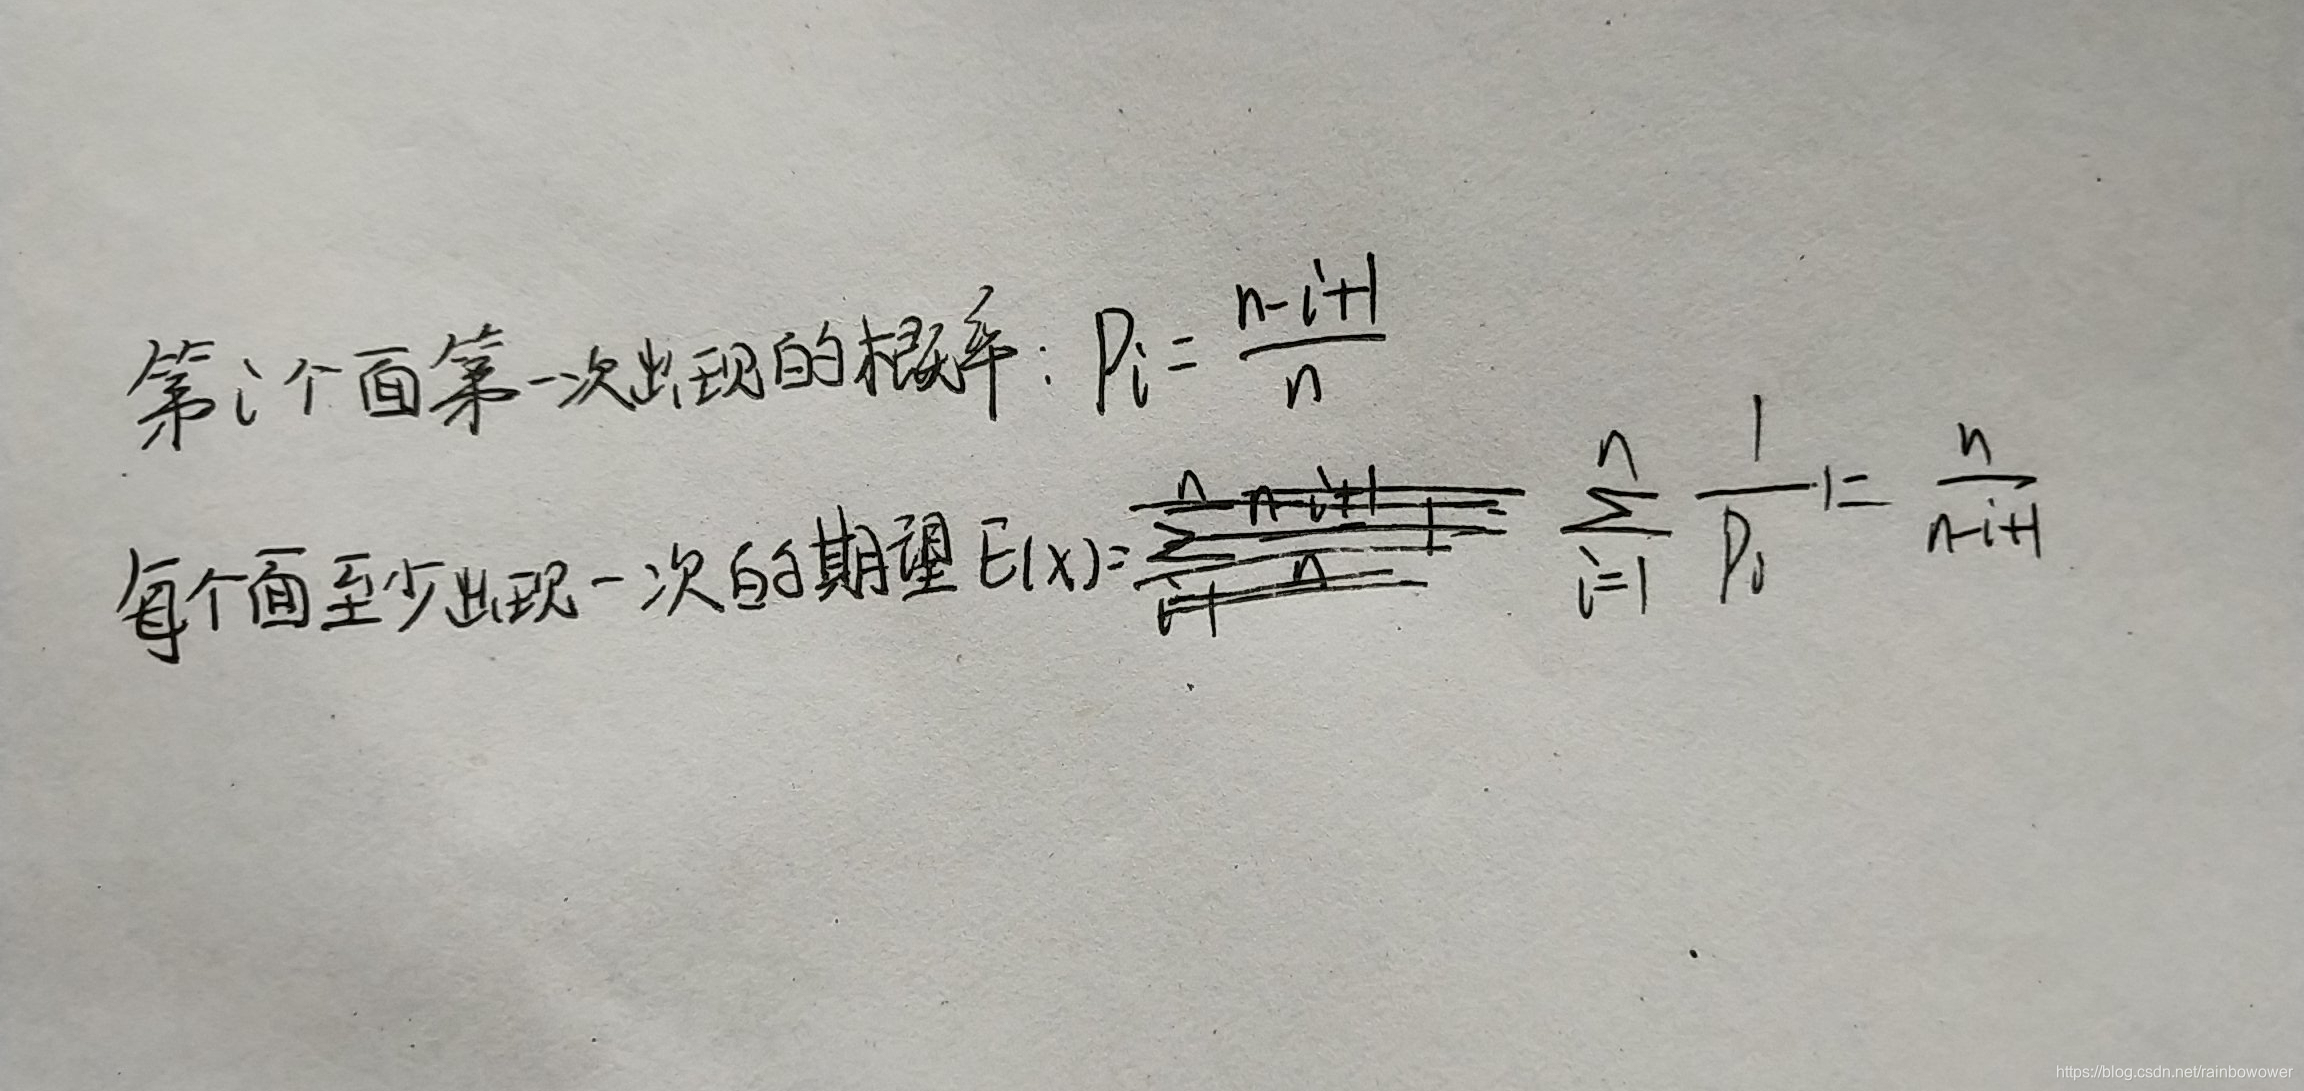 第i个面第一次出现的概率: Pi = \frac{n-i+1}{n}
每个面至少出现一次的期望 E(x)= \sum_{i=1}^{n} \frac{1}{Pi} \cdot 1 = \frac{n}{n-i+1}
https://blog.csdn.net/rainbowower